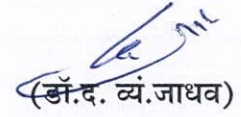 (डॉ.द. व्यं.जाधव)